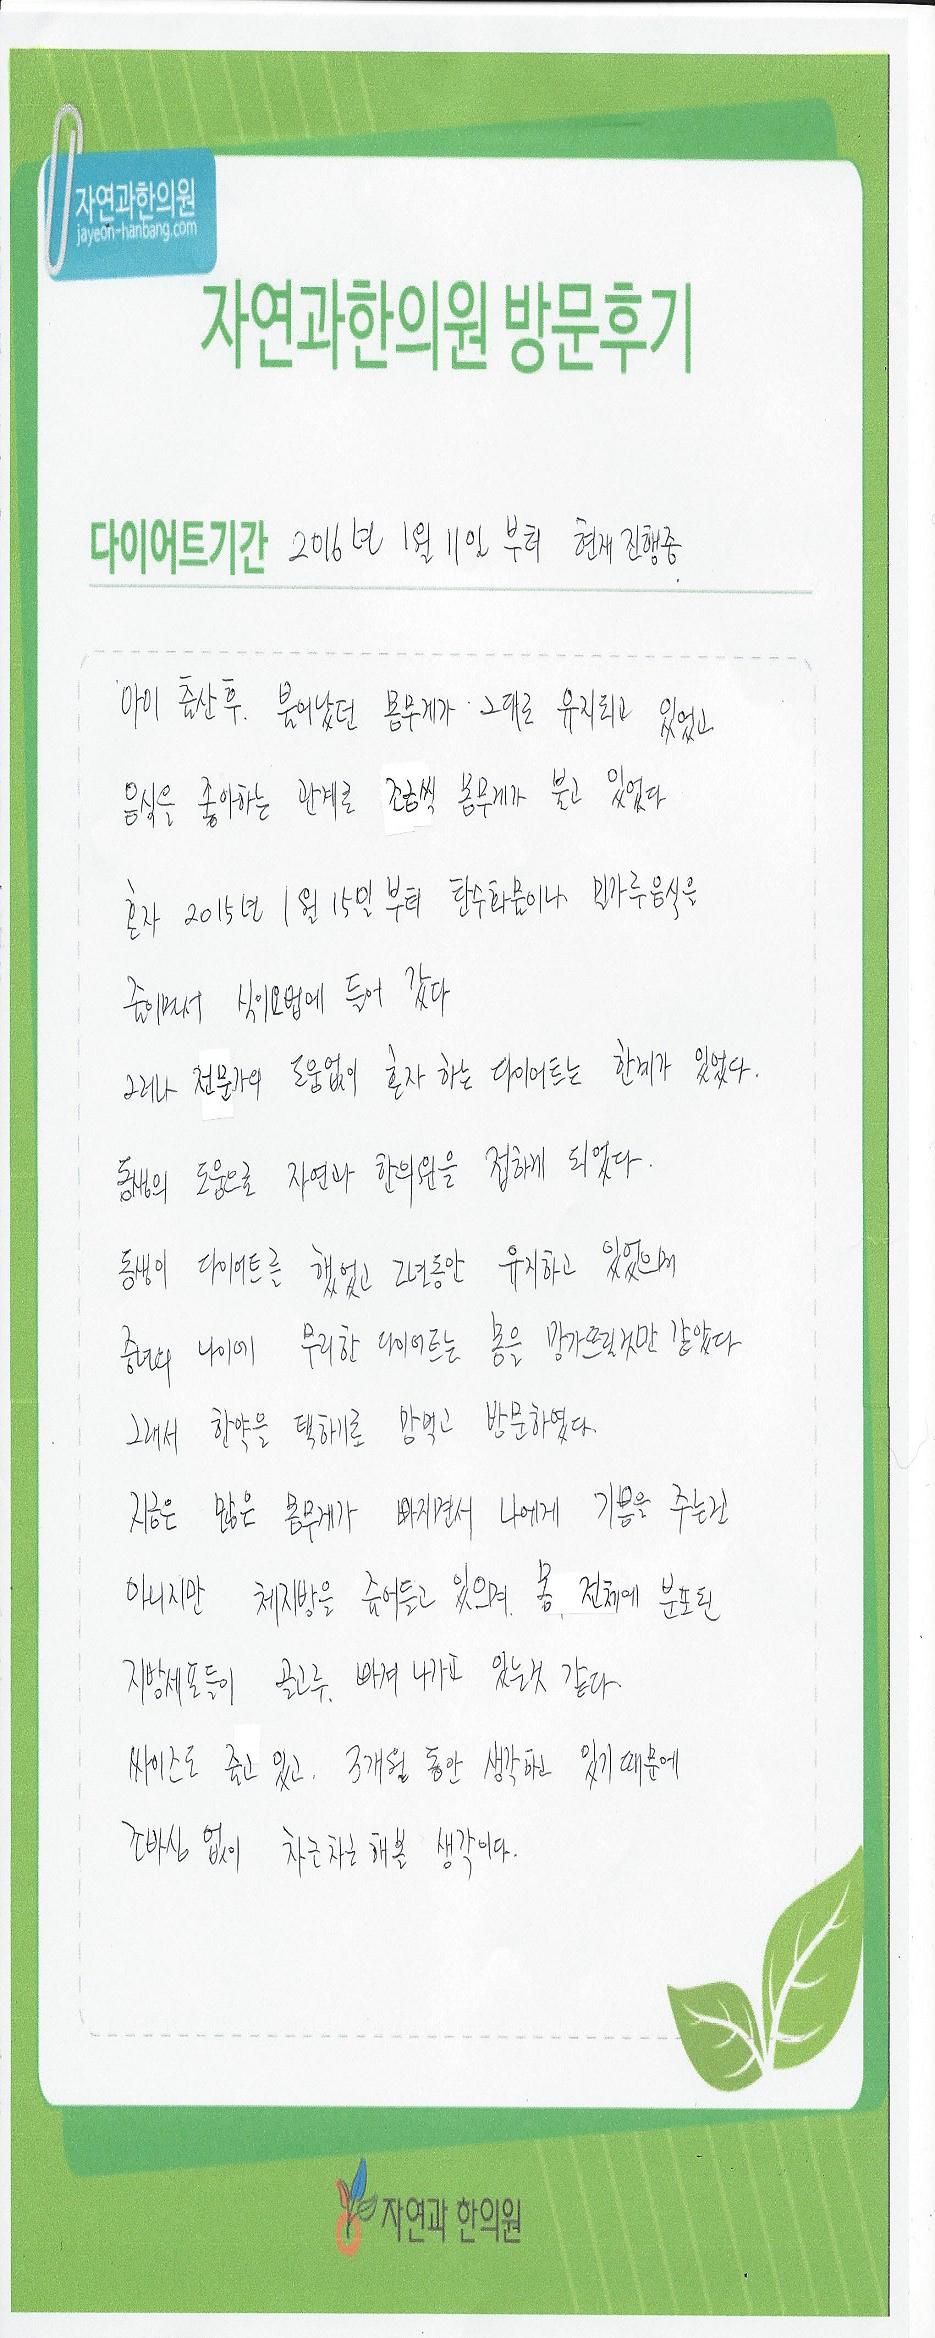 자연과한의원
jayeon-hanbang.com
자연과한의원 방문후기
다이어트기간 2016년 1월 11일 부터 현재 진행중
아이 출산후. 불어났던 몸무게가 그대로 유지되고 있었고
음식을 좋아하는 관계로 조금씩 몸무게가 붇고 있었다
혼자 2015년 1월 15일 부터 탄수화물이나 밀가루음식을
줄이면서 식이요법에 들어 갔다
그러나 전문가의 도움없이 혼자 하는 다이어트는 한계가 있었다.
동생의 도움으로 자연과 한의원을 접하게 되었다.
동생이 다이어트를 했었고 2년동안 유지하고 있었으며
중년의 나이에 무리한 다이어트는 몸을 망가뜨릴것만 같았다
그래서 한약을 택하기로 맘먹고 방문하였다.
지금은 많은 몸무게가 빠지면서 나에게 기쁨을 주는건
아니지만 체지방을 줄어들고 있으며, 몸 전체에 분포된
지방세포들이 골고루, 빠져 나가고 있는것 같다
싸이즈도 줄고 있고, 3개월 동안 생각하고 있기 때문에
조바심 없이 차근차근 해볼 생각이다.
자연과 한의원